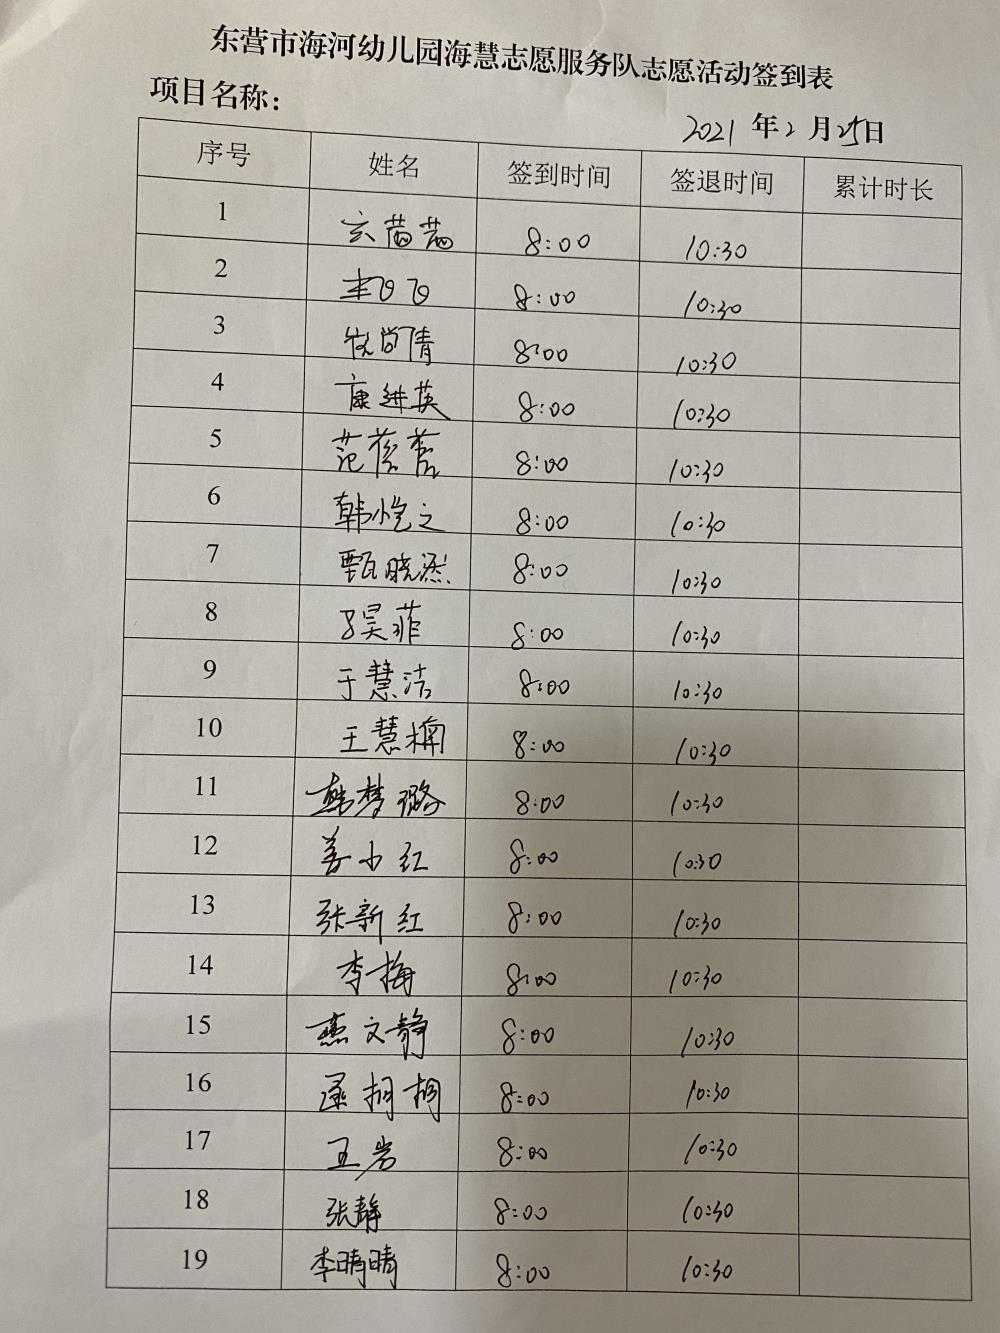 东营市海河幼儿园海慧志愿服务队志愿活动签到表
项目名称：
2021 年 2 月 25日
序号 姓名 签到时间 签退时间 累计时长
1 8:00 10:30
2 8:00 10:30
3 8:00 10:30
4 康进英 8:00 10:30
5 范蓓蓓 8:00 10:30
6 韩忆之 8:00 10:30
7 甄晓燕 8:00 10:30
8 昊菲 8:00 10:30
9 于慧洁 8:00 10:30
10 王慧楠 8:00 10:30
11 韩梦璐 8:00 10:30
12 姜小红 8:00 10:30
13 张新红 8:00 10:30
14 李梅 8:00 10:30
15 燕文静 8:00 10:30
16 8:00 10:30
17 王岩 8:00 10:30
18 张静 8:00 10:30
19 李晴晴 8:00 10:30